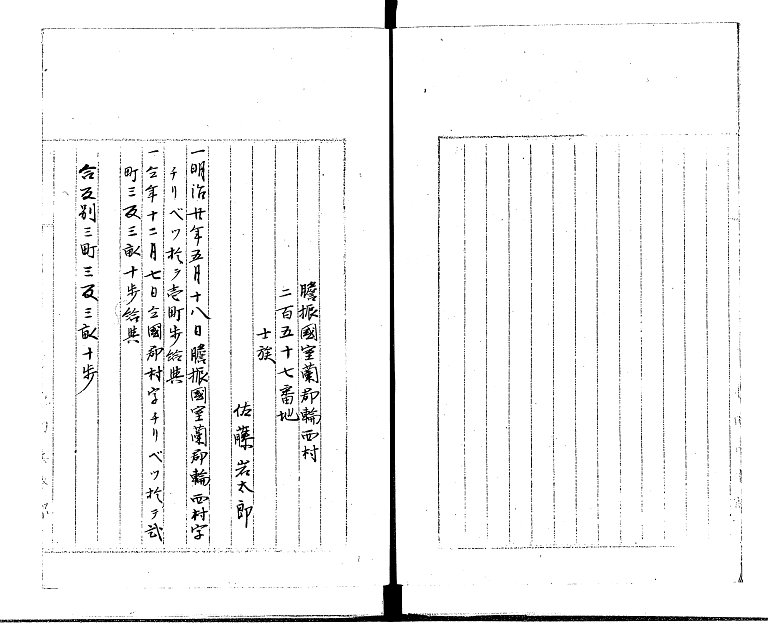 膽振國室蘭郡輪西村
二百五十七番地
士族
佐藤岩太郎
一明治廿年五月十八日膽振國室蘭郡輪西村字
チリベツ於テ壱町歩給與
一仝年十二月七日仝國郡村字チリベツ於テ弐
町三反三畝十歩給與
合反別三町三反三畝十歩